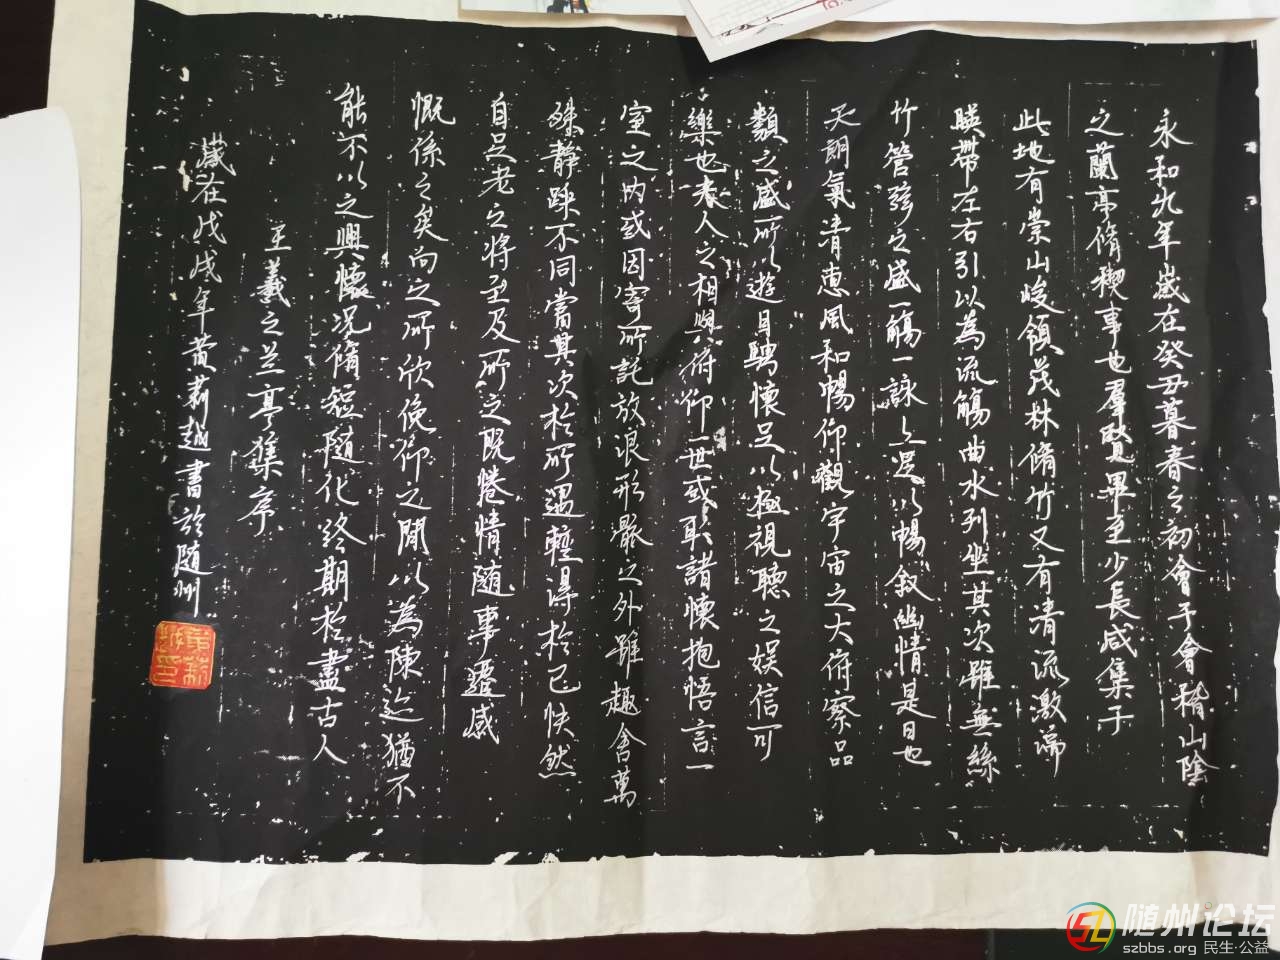 永和九年歲在癸丑暮春之初會于會稽山陰
之蘭亭脩稧事也羣賢畢至少長咸集于
此地有崇山峻領茂林脩竹又有清流激湍
暎帶左右引以為流觴曲水列坐其次雖無絲
竹管弦之盛一觴一詠亦足以暢敘幽情是日也
天朗氣清惠風和暢仰觀宇宙之大俯察品
類之盛所以遊目騁懷足以極視聽之娱信可
樂也夫人之相與俯仰一世或取諸懷抱悟言一
室之内或因寄所託放浪形骸之外雖趣舍萬
殊静踈不同當其次於所遇蹔得於己怏然
自足老之将至及所之既惓情随事遷感
慨係之矣向之所欣俛仰之間以為陳迹猶不
能不以之興懷况脩短随化終期於盡古人
王羲之兰亭集序
歲在戊戌年黄薪越書於随州
黄薪越印
随州论坛
szbbs.org 民生·公益